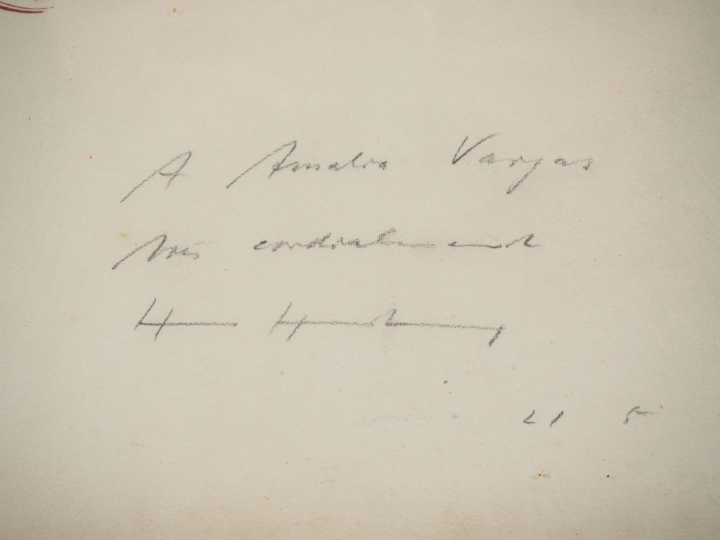 A Amalia Vargas
très cordialement
Hans Hartung
21 5